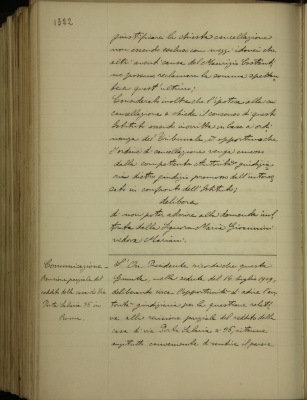 1322
giustificare la chiesta cancellazione
non essendo escluso con mezzi idonei che
altri aventi causa del Maurizio Costanti,
ne possano reclamare la somma spettan-
te a quest'ultimo;
Considerato inoltre che l'ipoteca alla cui
cancellazione si chiede il concorso di questo
Istituto essendo iscritta in base a ordi-
nanza del Tribunale, è opportuno che
l'ordine di cancellazione venga emesso
dalla competente Autorità giudizia-
ria dietro giudizio promosso dall'interes-
sato in confronto dell'Istituto;
delibera
di non poter aderire alla domanda inol-
trata dalla Signora Maria Giovannini
vedova Mariani.
Comunicazione -
Revisione parziale del
reddito della casa di Via
Porta Salaria 95 in
Roma
L'On. Presidente ricorda che questa
Giunta, nella seduta del 14 luglio 1909,
deliberando circa l'opportunità di adire l'au-
torità giudiziaria per la questione relati-
va alla revisione parziale del reddito della
casa di via Porta Salaria n° 95, ritenne
anzitutto conveniente di sentire il parere